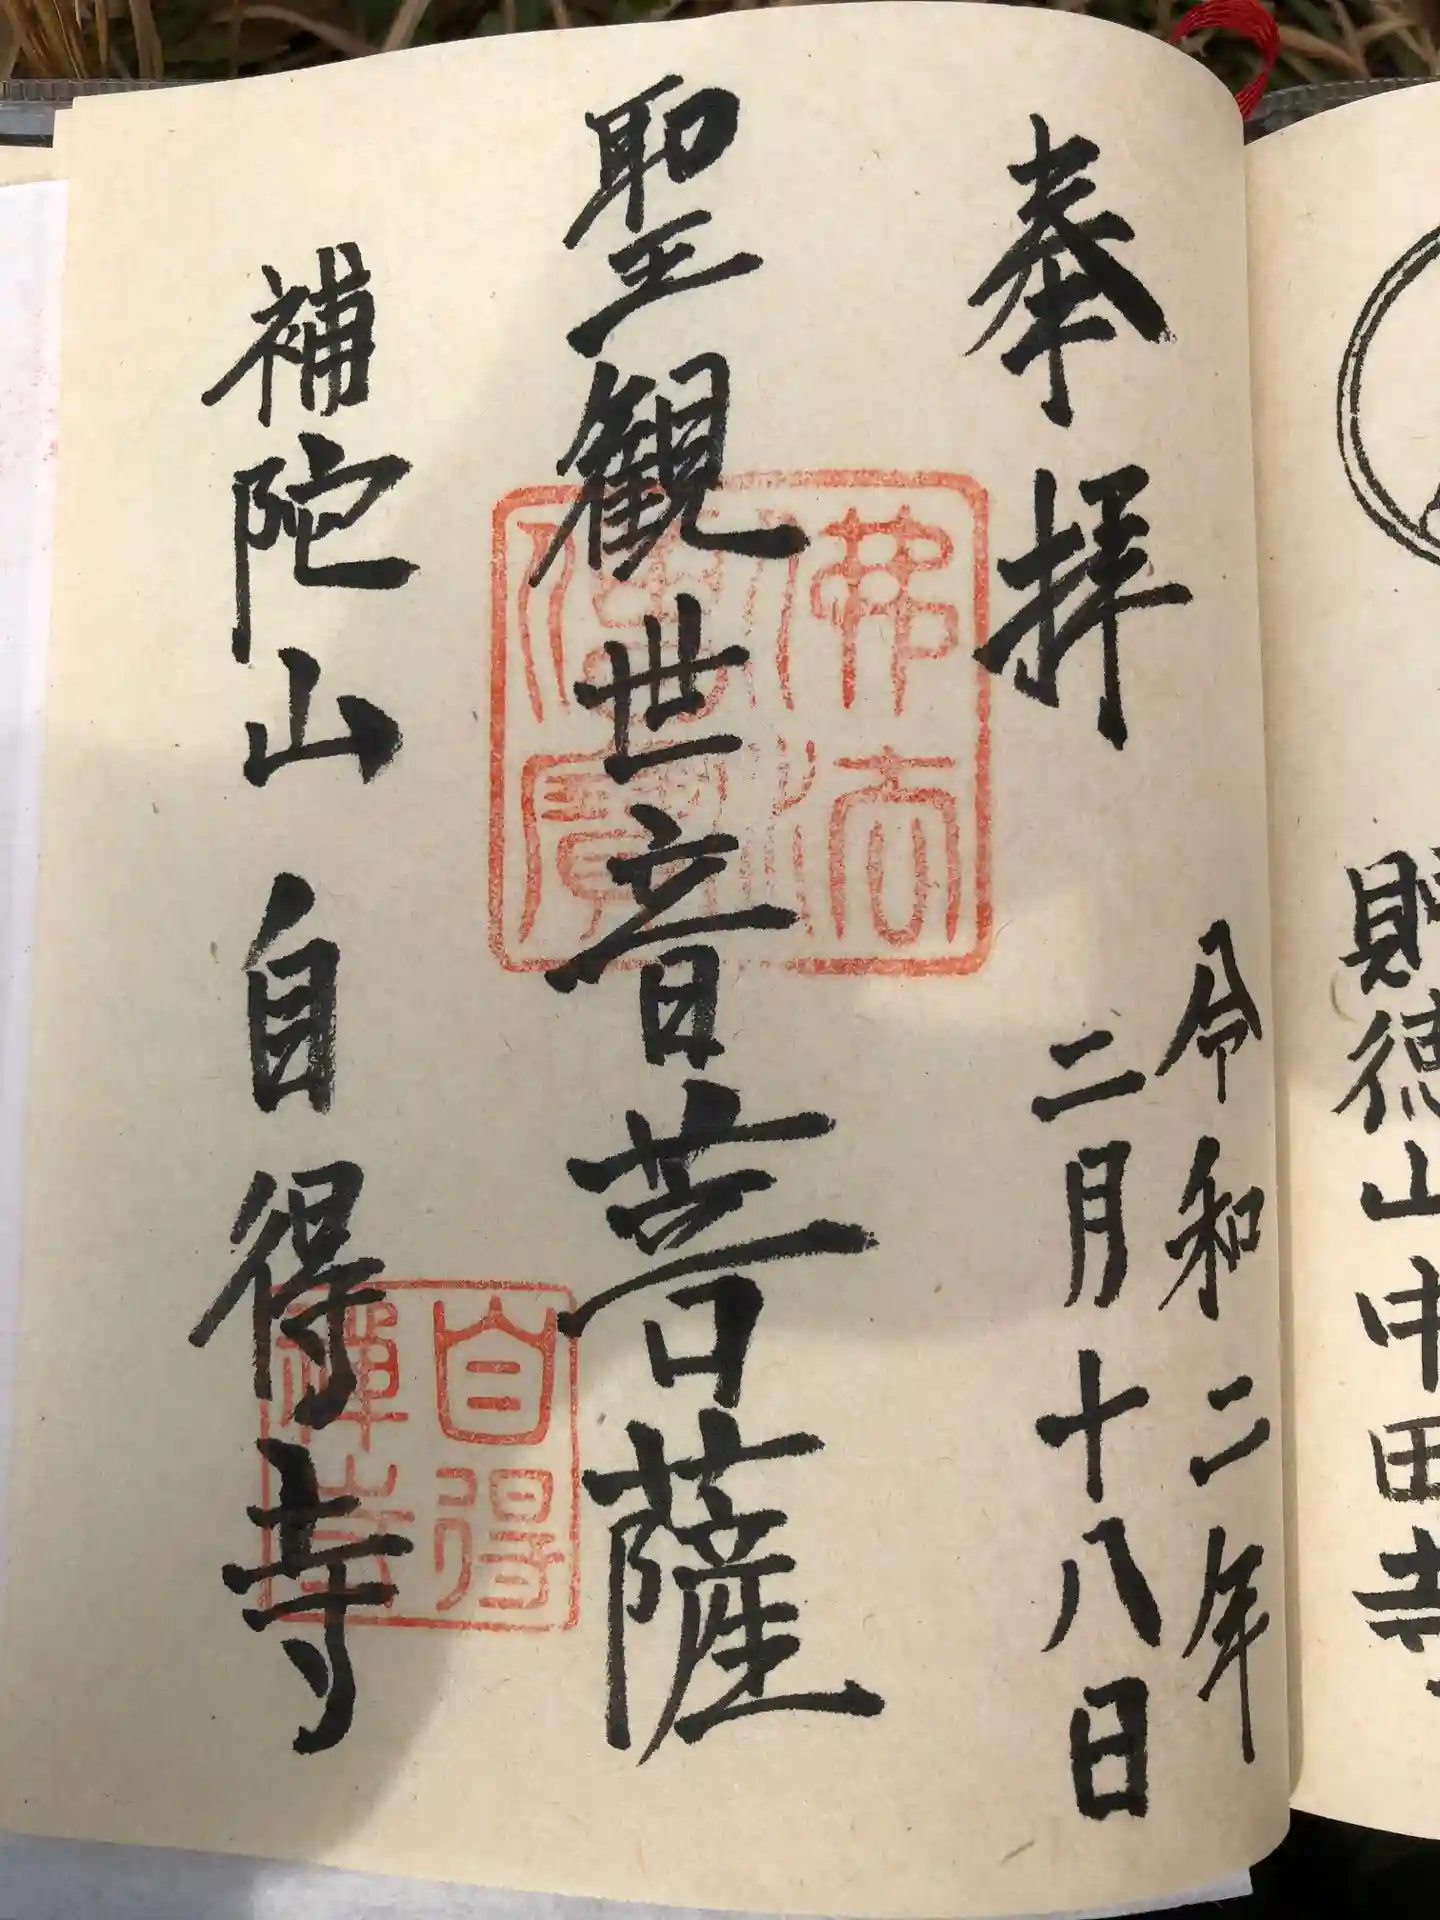 奉拝
令和二年
二月十八日
聖観世音菩薩
補陀山自得寺
佛法僧寶
自得禅寺
徳山中田寺